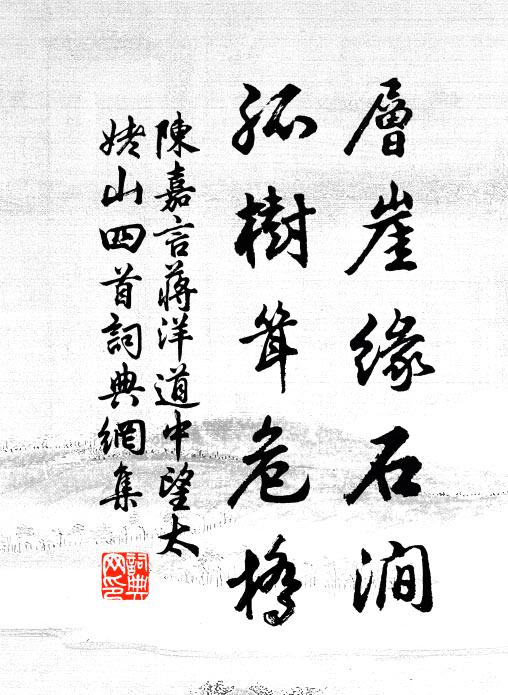 層崖緣石澗
孤樹茸危橋
陳嘉言蔣洋道中望太
姥山四首詞典網集
詞典
网印